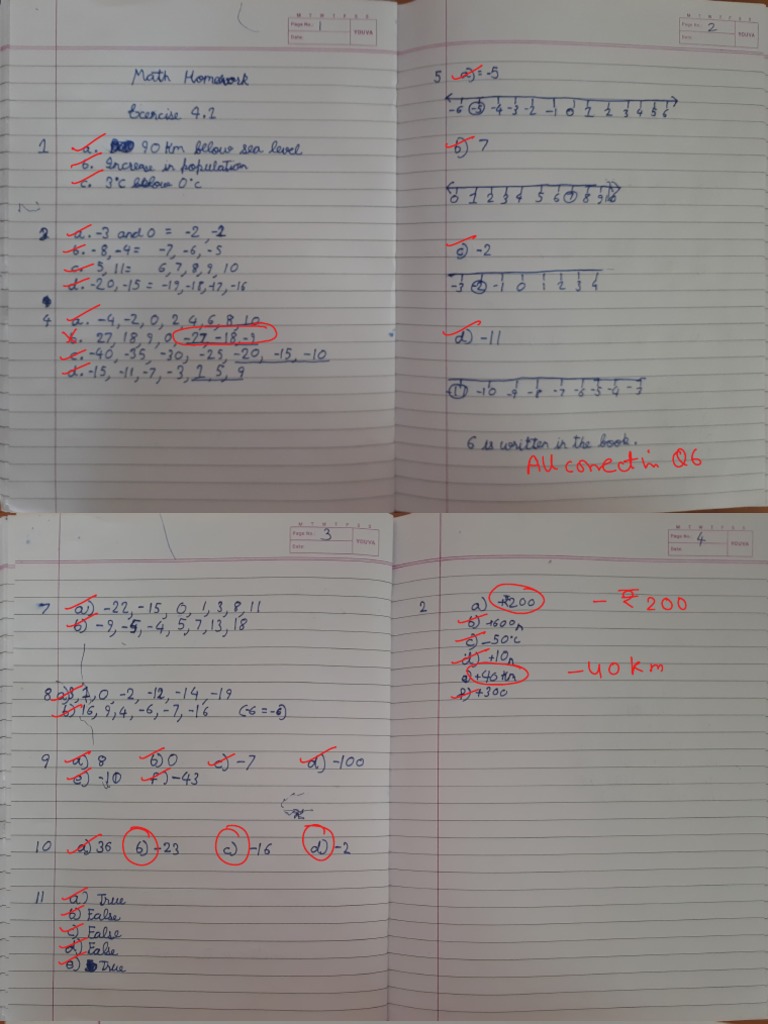 M T W T F S S
Page No. 1
Date:
YOUVA
Math Homework
Exercise 4.2
1 a. 90 Km below sea level
b. Increase in population
c. 3°C below 0°c
3 a. -3 and 0 = -2, -2
b. -8, -4 = -7, -6, -5
c. 5, 11= 6, 7, 8, 9, 10
d. -20, -15 = -19, -18, -17, -16
4 a. -4, -2, 0, 2, 4, 6, 8, 10
b. 27, 18, 9, 0, -27, -18, -9
c. -40, -35, -30, -25, -20, -15, -10
d. -15, -11, -7, -3, 2, 5, 9
M T W T F S S
Page No. 2
Date:
YOUVA
5 a) = -5
-6 -5 -4 -3 -2 -1 0 1 2 3 4 5 6
b) 7
0 1 2 3 4 5 6 7 8 9 10
c) -2
-3 -2 -1 0 1 2 3 4
d) -11
-11 -10 -9 -8 -7 -6 -5 -4 -3
6 is written in the book.
All correct in Q6
M T W T F S S
Page No. 3
Date:
YOUVA
7 a) -22, -15, 0, 1, 3, 8, 11
b) -9, -5, -4, 5, 7, 13, 18
8 a) 3, 1, 0, -2, -12, -14, -19
b) 16, 9, 4, -6, -7, -16 (-6 = -6)
9 a) 8 b) 0 c) -7 d) -100
e) -10 f) -43
10 a) 36 b) -23 c) -16 d) -2
11 a) True
b) False
c) False
d) False
e) True
M T W T F S S
Page No. 4
Date:
YOUVA
2 a) +₹200 - ₹200
b) +600m
c) -50°c
d) +10m
e) +40 Km -40 km
f) +300